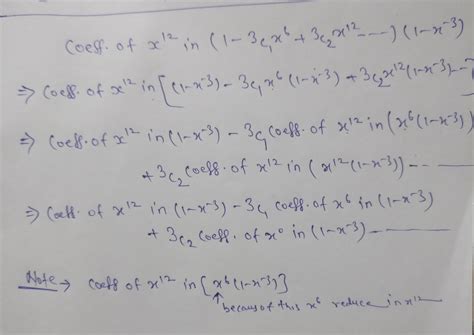 Coeff. of x^12 in (1 - 3c₁x^6 + 3c₂x^12 ----) (1-x^-3)
⇒ Coeff. of x^12 in [(1-x^-3) - 3c₁x^6 (1-x^-3) + 3c₂x^12(1-x^-3) --]
⇒ Coeff. of x^12 in (1-x^-3) - 3c₁ coeff. of x^12 in (x^6(1-x^-3))
+ 3c₂ coeff. of x^12 in (x^12(1-x^-3)) -- ----
⇒ Coeff. of x^12 in (1-x^-3) - 3c₁ coeff. of x^6 in (1-x^-3)
+ 3c₂ coeff. of x^0 in (1-x^-3) ----------
Note → coeff of x^12 in [x^6(1-x^-3)]
↑ because of this x^6 reduce in x^12